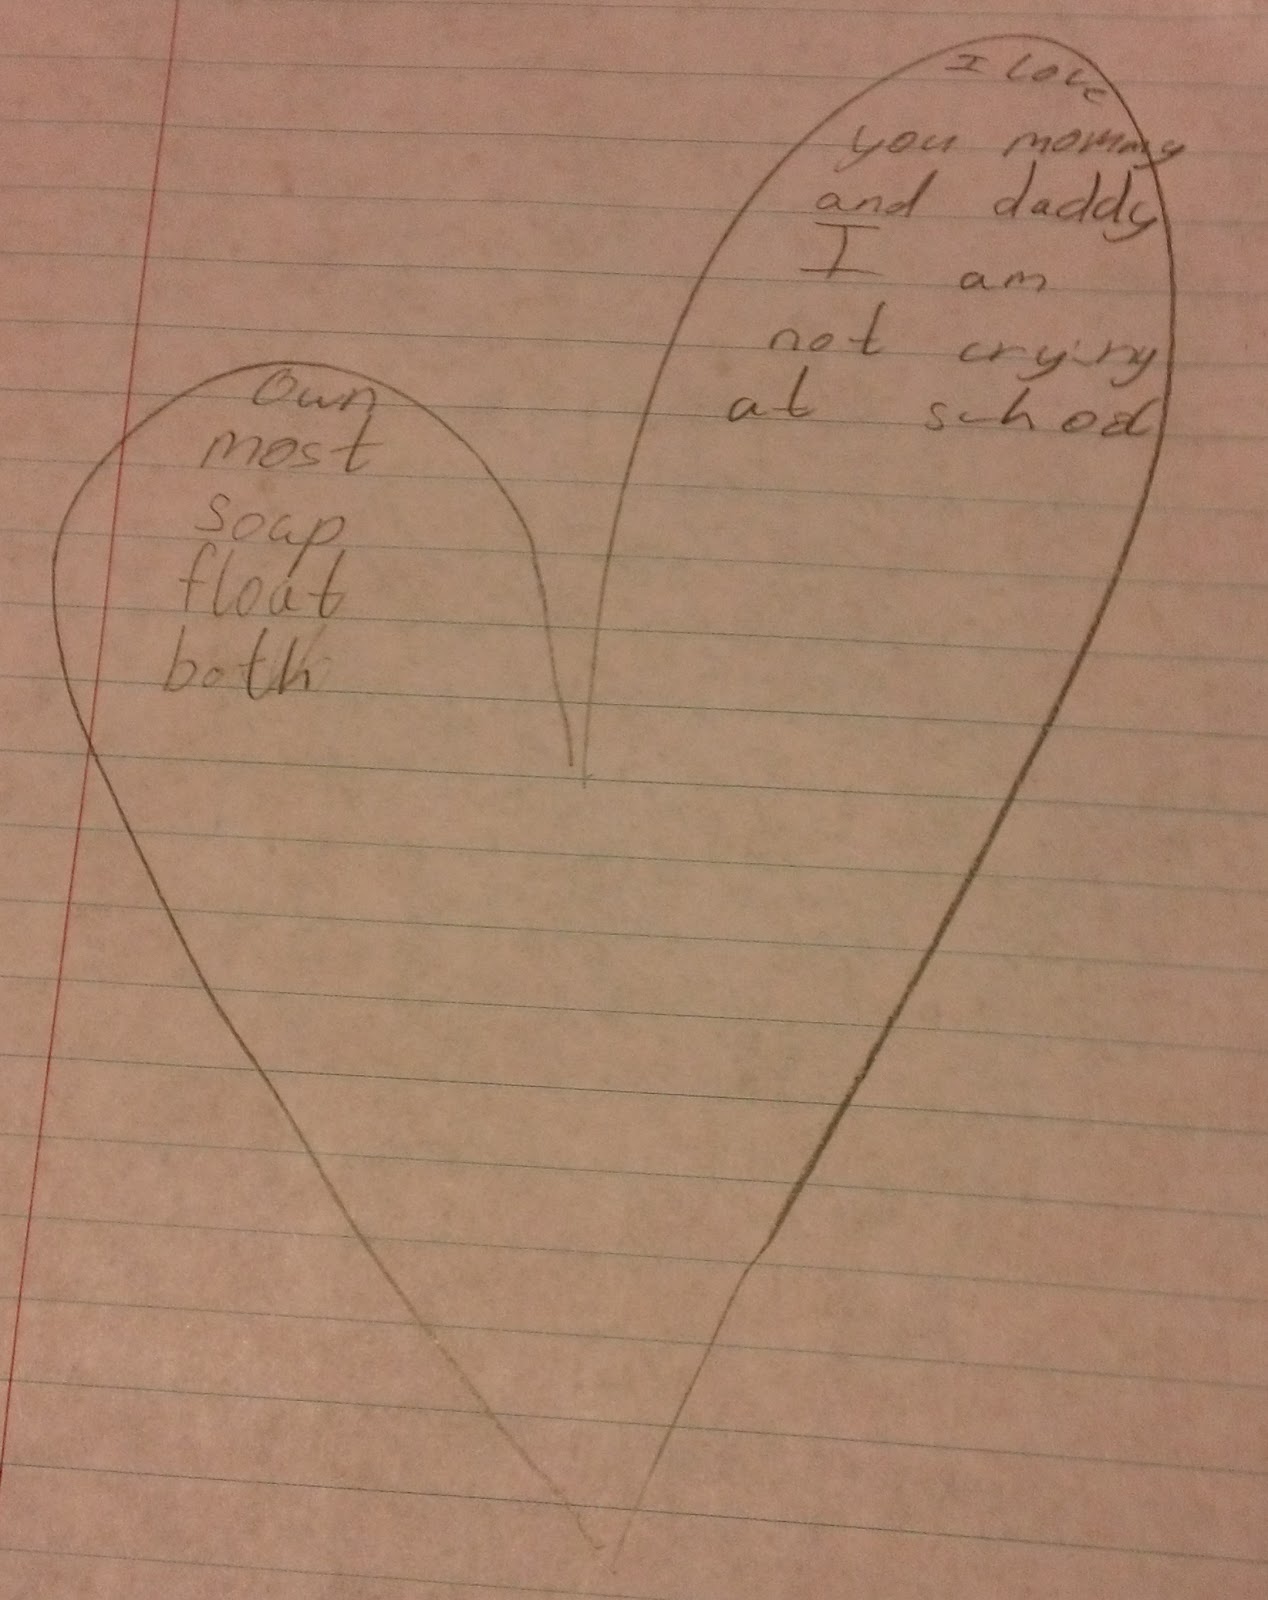 Own
most
soap
float
both
I love
you mommy
and daddy
I am
not crying
at school